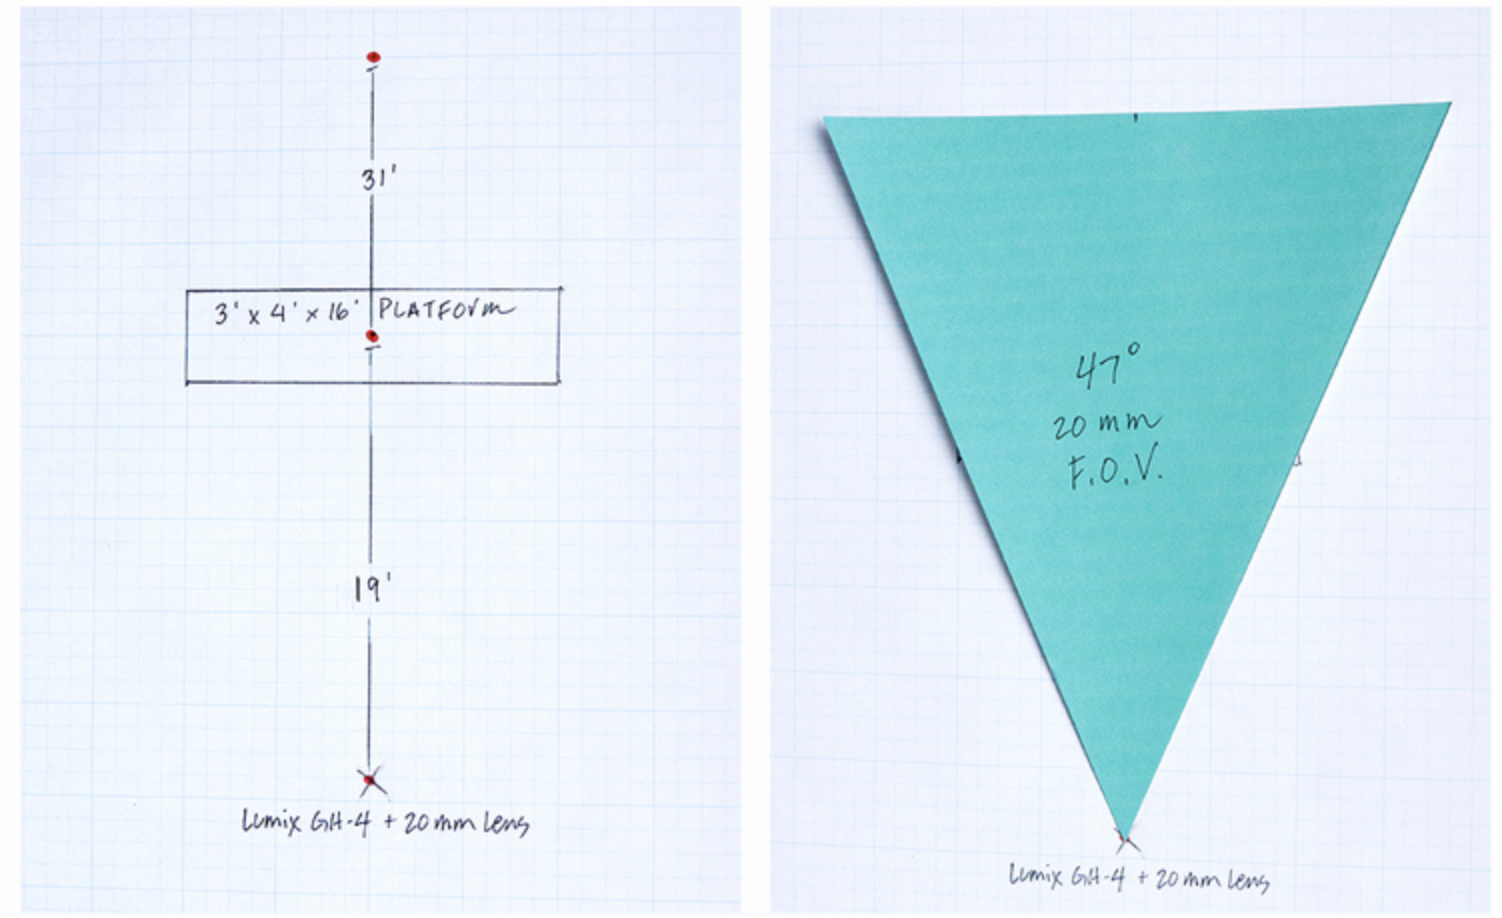 31'
3' x 4' x 16' PLATFORM
19'
Lumix GH-4 + 20mm Lens
47°
20 mm
F.O.V.
Lumix GH-4 + 20mm Lens